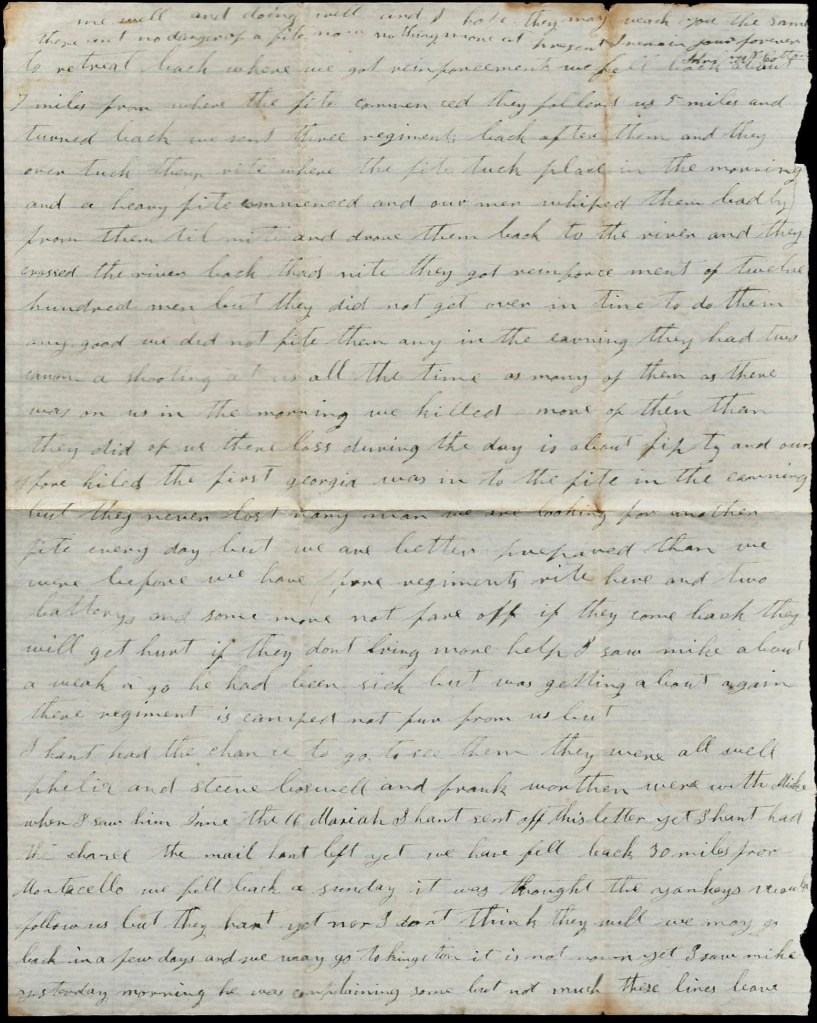 me well and doing well and I hope they may reach you the same
there isnt no danger of a fite now nothing more at present I remain your forever
to retreat back where we got reinforcements we fell back about
7 miles from where the fite commenced they follerd us 5 miles and
turned back we sent three regiments back after them and they
over tuck them rite where the fite tuck place in the morning
and a heavy fite commenced and our men whiped them badly
from then til nite and drove them back to the river and they
crossed the river back that nite they got reinforce ment of twelve
hundred men but they did not get over in time to do them
any good we did not fite them any in the eavning they had two
canon a shooting at us all the time as many of them as there
was on us in the morning we killed more of them than
they did of us there loss during the day is about fifty and ours
fore kiled the first georgia was in to the fite in the eavning
but they never lost nary man we are looking for another
fite every day but we are better prepared than we
were before we have fore regiments rite here and two
batterys and some more not fare off if they come back they
will get hurt if they dont bring more help I saw mike about
a weak a go he had been sick but was getting about again
there regiment is camped not fur from us but
I hant had the chance to go to see them they were all well
phelix and steeve boswell and frank worthen were with Mike
when I saw him June the 11 Mariah I hant sent off this letter yet I hant had
the chance the mail hant left yet we have fell back 30 miles from
Monticello we fell back a sunday it was thought the yankeys would
follow us but they hant yet nor I dont think they will we may go
back in a few days and we may go to kingston it is not known yet I saw mike
yesterday morning he was complaining some but not much these lines leave